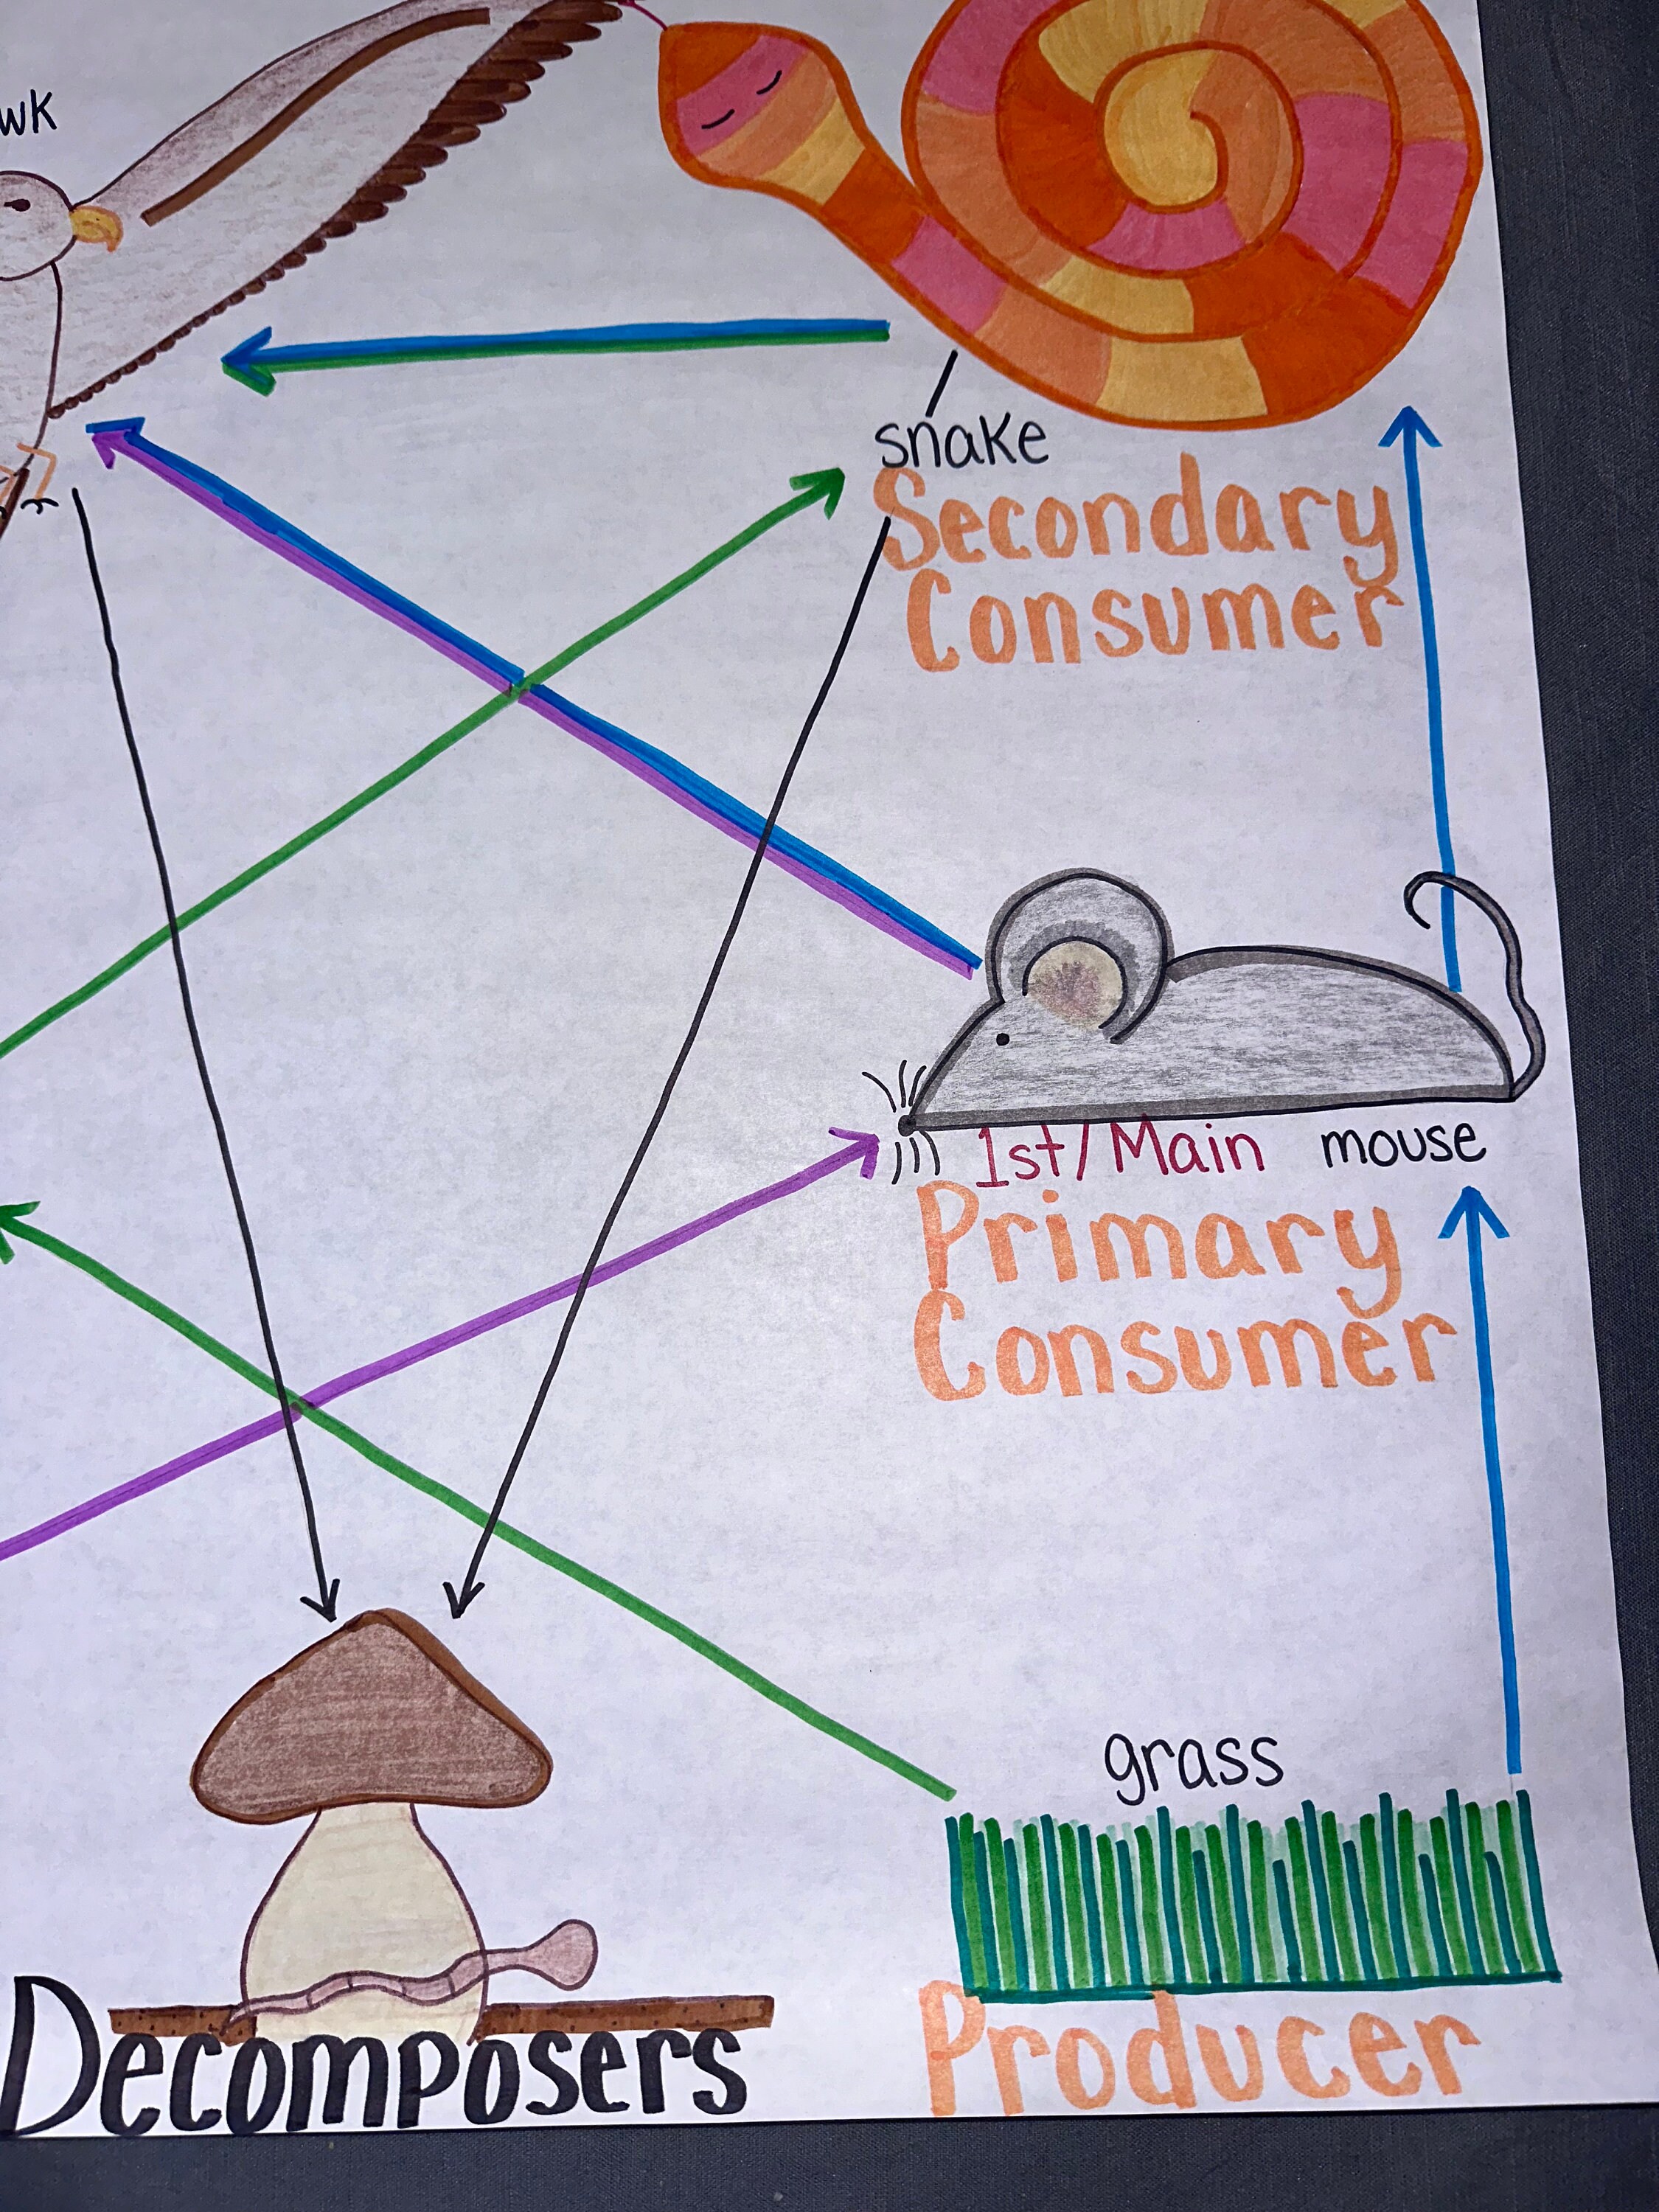 wk
snake
Secondary
Consumer
1st/Main mouse
Primary
Consumer
grass
Producer
Decomposers